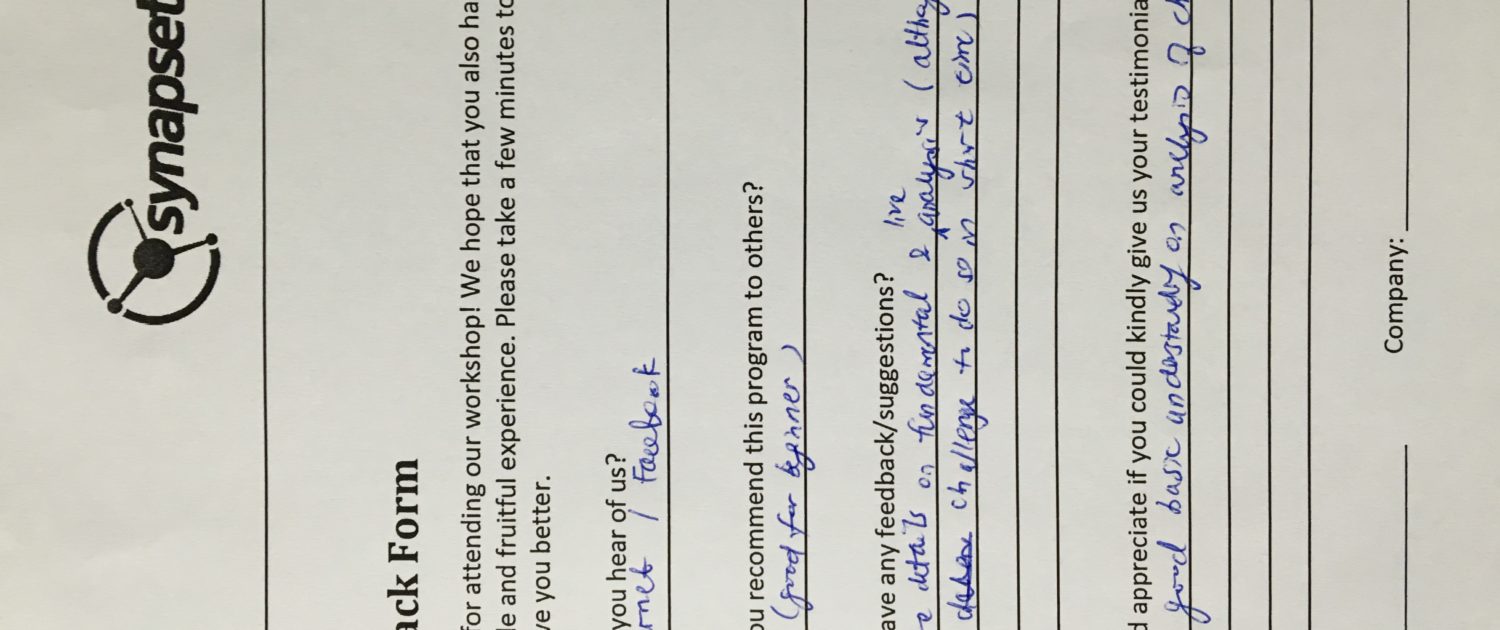 synapset
ack Form
for attending our workshop! We hope that you also ha
le and fruitful experience. Please take a few minutes to
ve you better.
you hear of us?
rnet / Facebook
ou recommend this program to others?
(good for beginner)
ave any feedback/suggestions?
live
e details on fundamental & analysis (althou
challenge to do so in short time)
d appreciate if you could kindly give us your testimonia
good basic understandy on analysis of ch
Company: